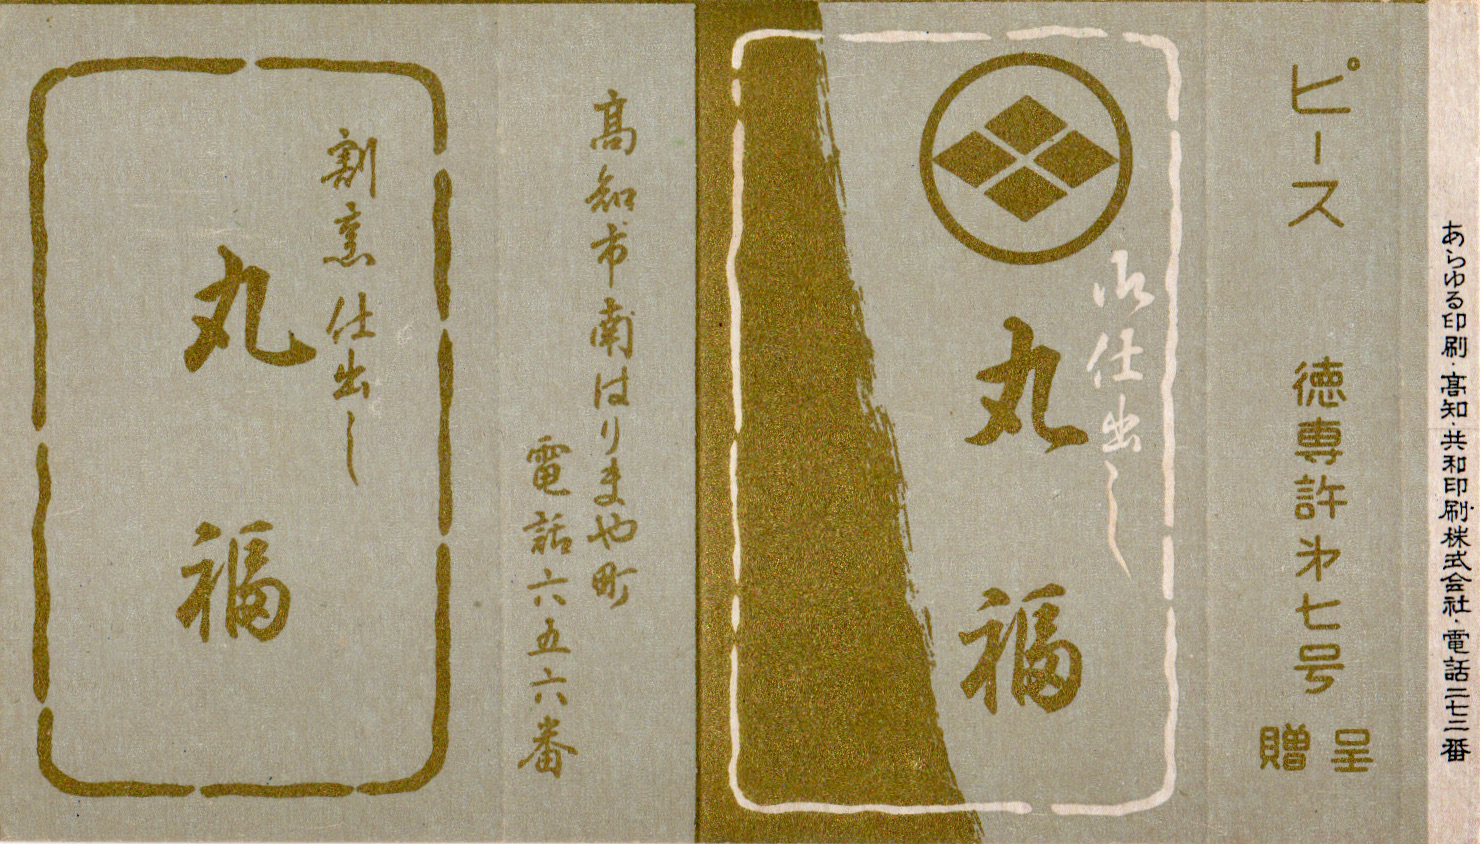 あらゆる印刷・高知・共和印刷株式会社・電話二七三番
ピース 徳専許第七号
贈呈
御仕出し
丸福
高知市南はりまや町
電話六五六番
割烹仕出し
丸福